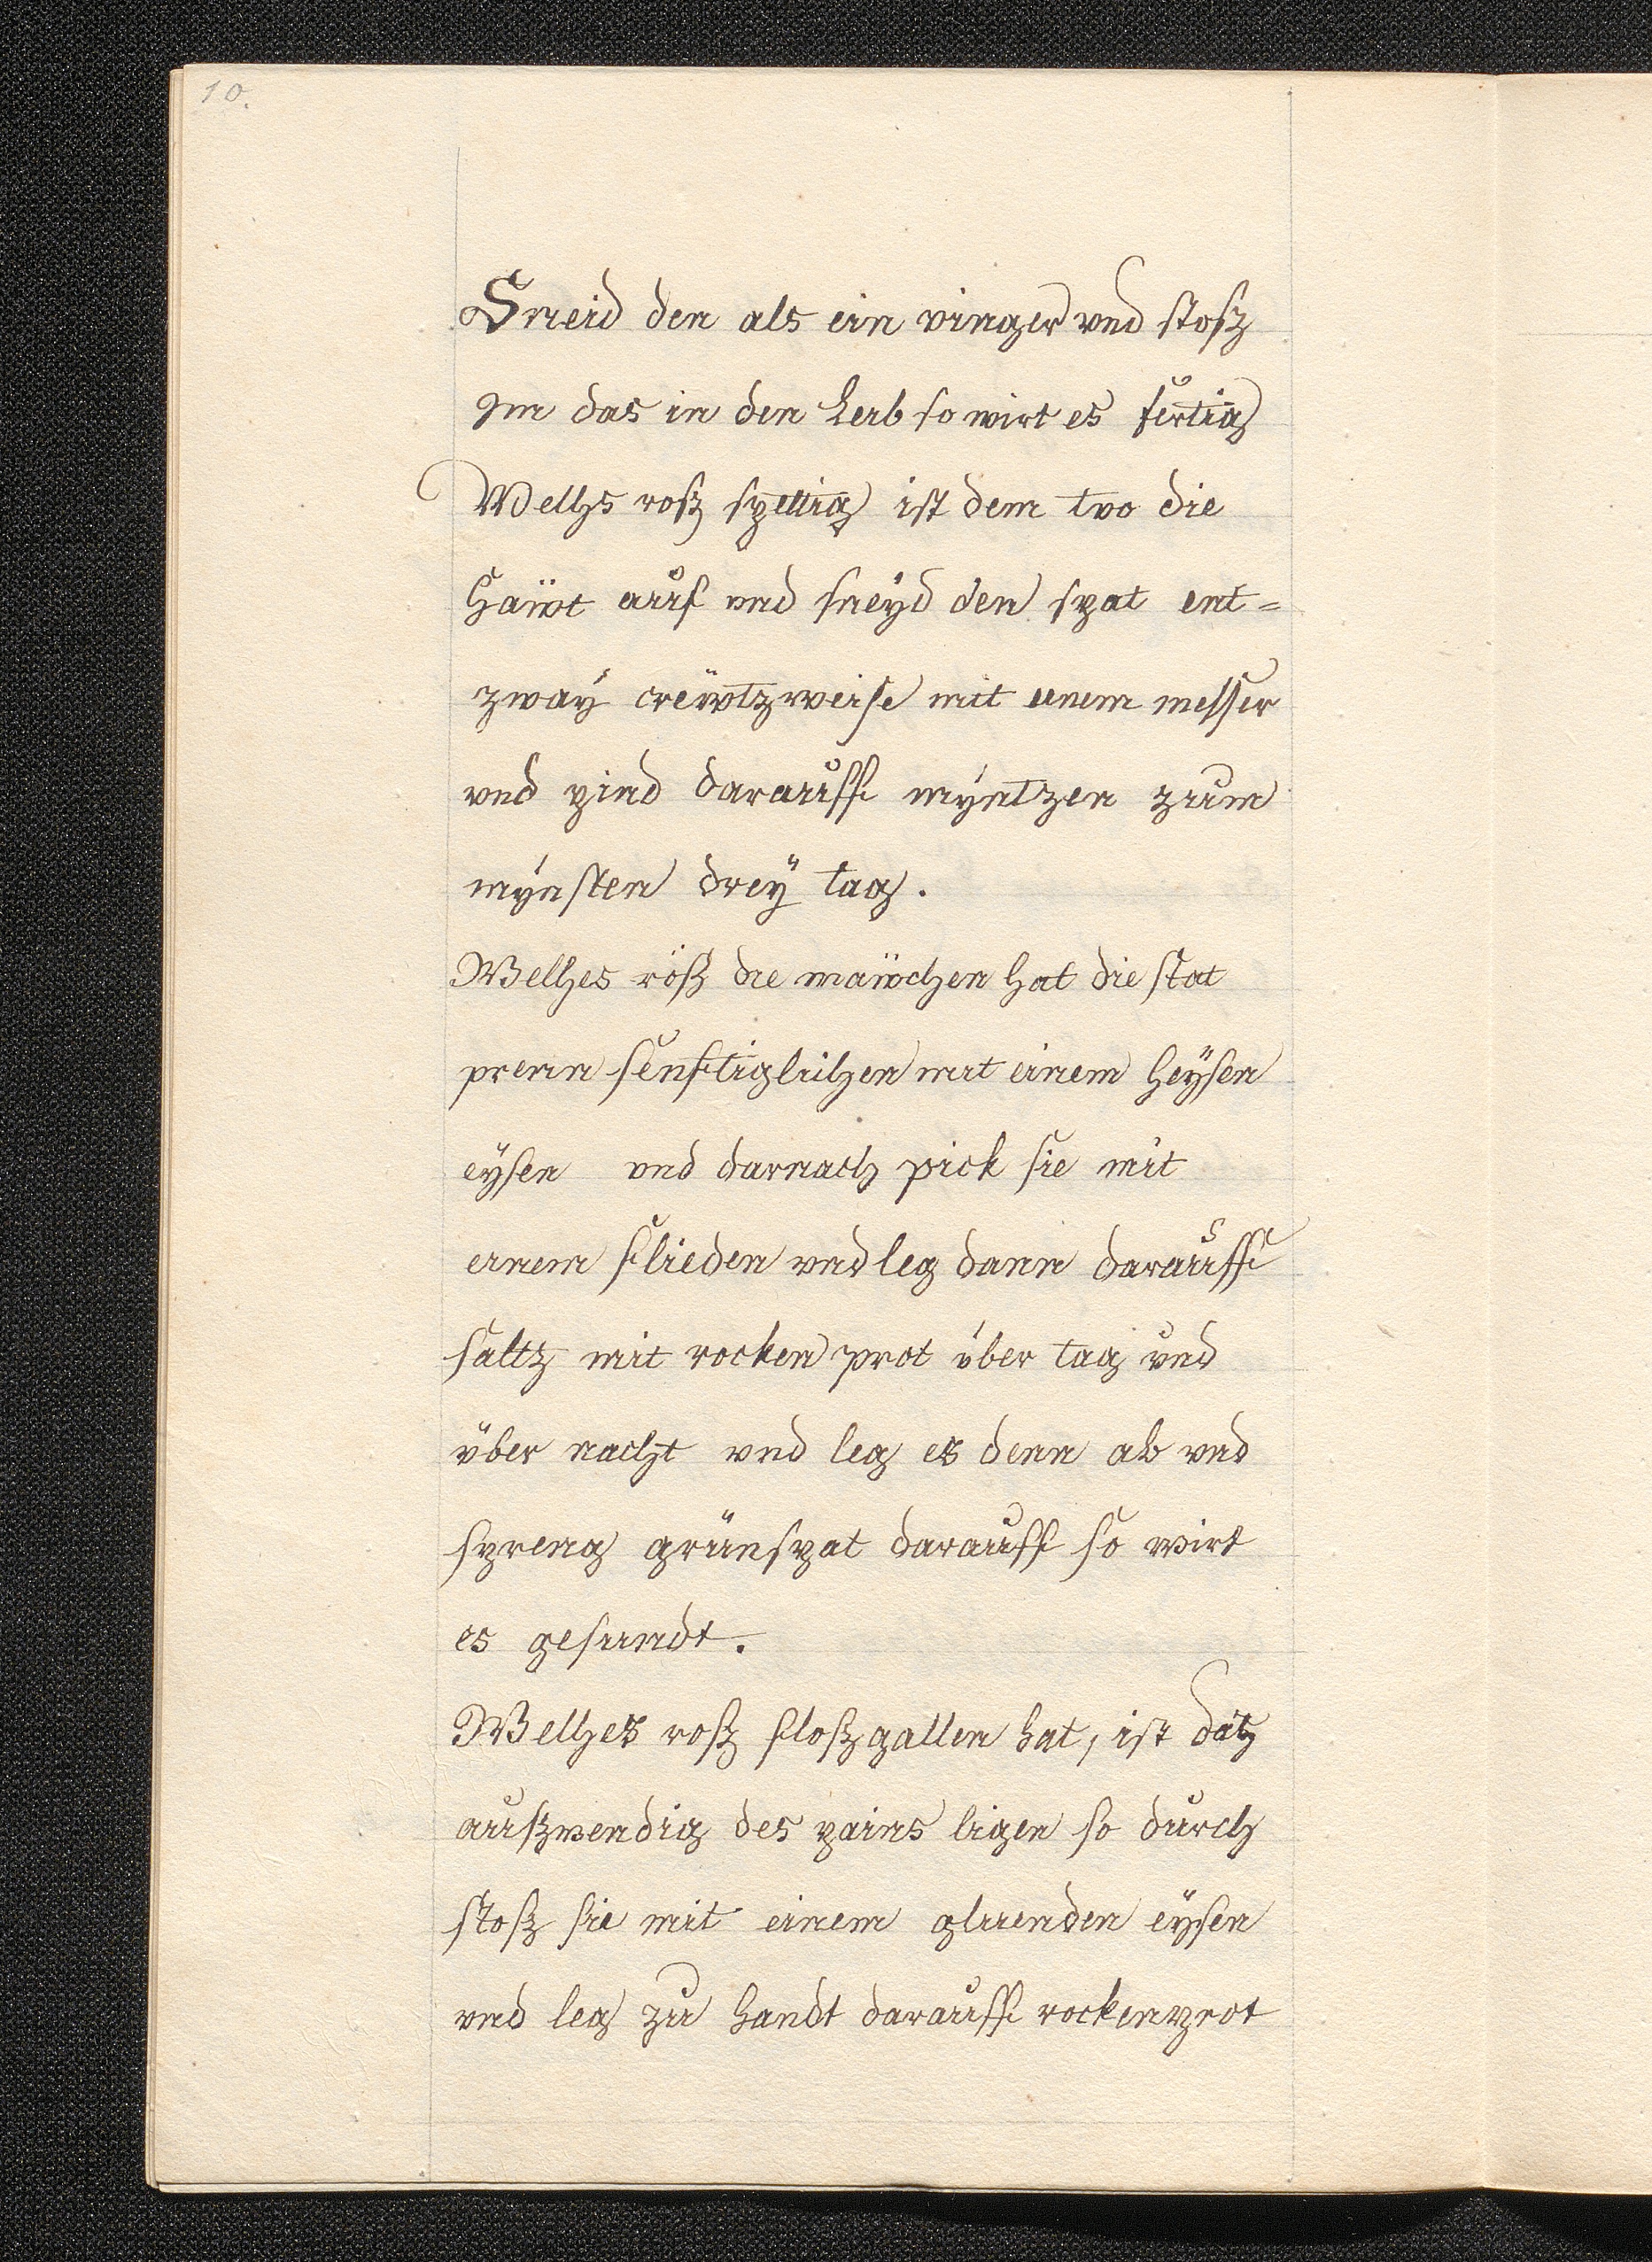 10.
Sneid den als ein vinger vnd stosz
ym das in den leib so wirt es fertig
Welhs rosz spettig ist dem two die
hawt auf vnd sneyd den spat ent=
zway crewtzweise mit einem messer
vnd pind darauff myntzen zum
mynsten drey tag.
Welhes rosz die mawchen hat die stat
prenn senftiglichen mit einem heysen
eysen vnd darnach pick sie mit
einem flieden vnd leg dann darauff
saltz mit rocken prot über tag vnd
über nacht vnd leg es denn ab vnd
spreng grünspat darauff so wirt
es gesundt.
Welhes rosz floszgallen hat, ist datz
auszwendig des pains ligen so durch
stosz sie mit einem gluenden eysen
vnd leg zu handt darauff rockenprot